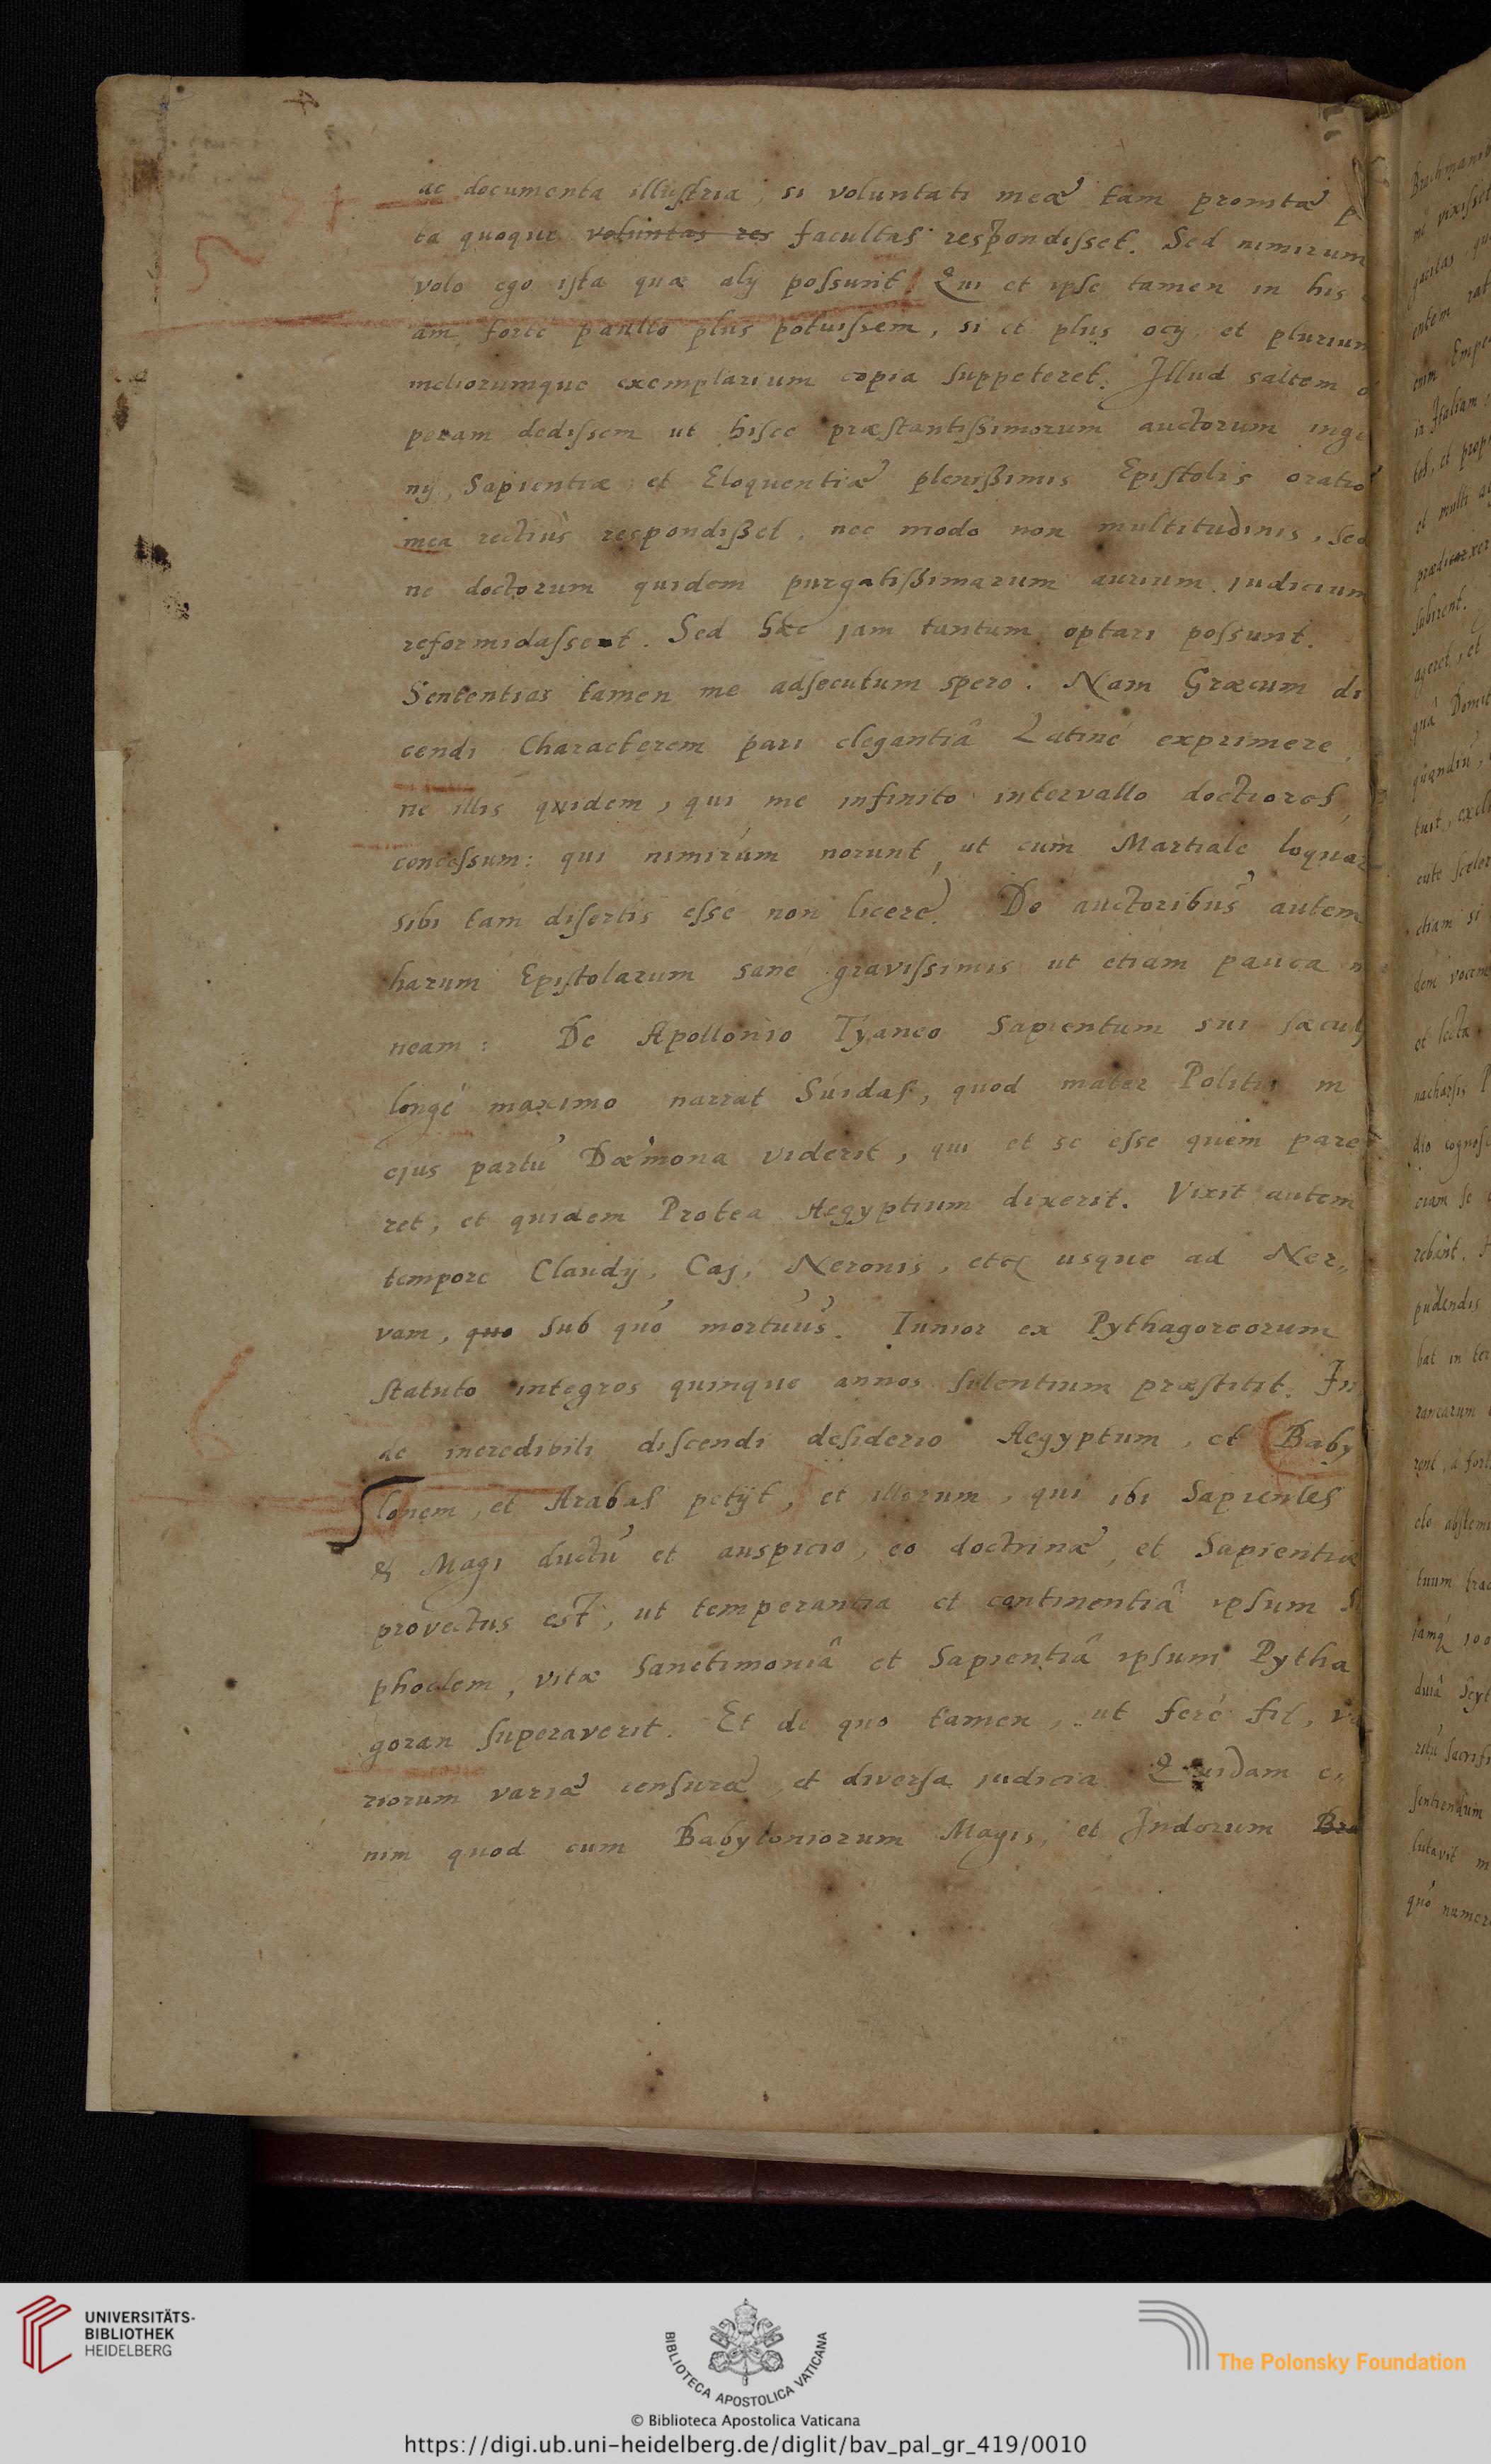 ac documenta illustria, si voluntati meæ tam promtæ p
ta quoque voluntas res facultas respondisset. Sed nimirum
volo ego ista quæ alij possunt! Qui et ipse tamen in his
am, forte paullo plus potuissem, si et plus ocij et plurium
meliorumque exemplarium copia suppeteret. Illud saltem o
peram dedissem ut hisce præstantissimorum auctorum inge
nij, Sapientiæ et Eloquentiæ plenißimis Epistolis oratio
mea rectius respondißet, nec modo non multitudinis, sed
ne doctorum quidem purgatißimarum aurium judicium
reformidasset. Sed hæc jam tantum optari possunt.
Sententias tamen me adsecutum spero. Nam Græcum di
cendi Characterem pari elegantiâ Latiné exprimere,
ne illis quidem, qui me infinito intervallo doctiores,
concessum: qui nimirùm norunt, ut cum Martiale loquar
sibi tam disertis esse non licere. De auctoribus autem
harum Epistolarum sané gravissimis ut etiam pauca m
neam: De Apollonio Tyaneo Sapientum sui sæculj
longé maximo narrat Suidas, quod mater Politis in
ejus partu Dæmona viderit, qui et se esse quem pare
ret, et quidem Protea Aegyptium dixerit. Vixit autem
tempore Claudij, Caj, Neronis, etc usque ad Ner„
vam, quo sub quo mortuus. Iunior ex Pythagoreorum
statuto integros quinque annos silentium præstitit. In
de incredibili discendi desiderio Aegyptum, et Baby
lonem, et Arabas petijt, et illorum, qui ibi Sapientes
& Magi ductu et auspicio, eo doctrinæ, et Sapientiæ
provectus est, ut temperantia et continentiâ ipsum S
phoclem, vitæ Sanctimoniâ et Sapientiâ ipsum Pytha
goran superaverit. Et de quo tamen, ut feré fit, va
riorum variæ censuræ, et diversa judicia. Quidam e„
nim quod cum Babyloniorum Magis, et Indorum Bra
Brachmanib
entem rat
enim Empe
ir Italiam
tos, et prop
et multi
subirent.
ageret, et
quâ Domit
quandiu,
tuit, excl
etiam si
dem vocem
et lecta
nacharsis P
dio cognosc
ciam se
pudendis
bat in ter
tuum trac
jamq 100
duiâ Scyt
ritu sacrifi
sentiendum
lutavit m
quo numer
UNIVERSITÄTS-
BIBLIOTHEK
HEIDELBERG
BIBLIOTECA APOSTOLICA VATICANA
The Polonsky Foundation
© Biblioteca Apostolica Vaticana
https://digi.ub.uni-heidelberg.de/diglit/bav_pal_gr_419/0010